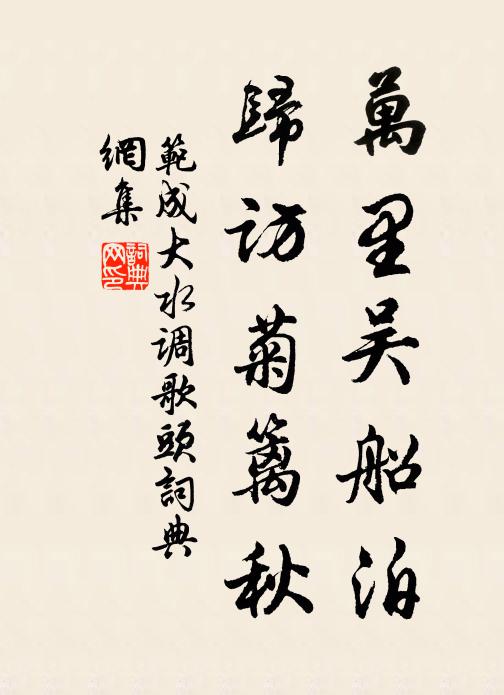 萬里吴船泊
歸訪菊籬秋
範成大水调歌頭詞典
網集
詞典网印